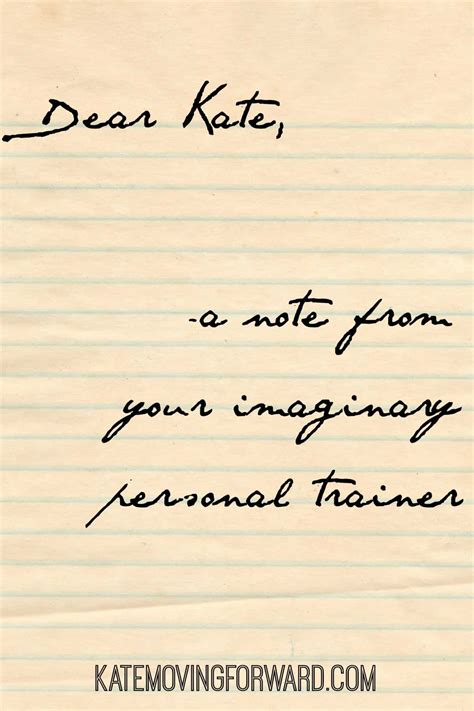 Dear Kate,
-a note from
your imaginary
personal trainer
KATEMOVINGFORWARD.COM